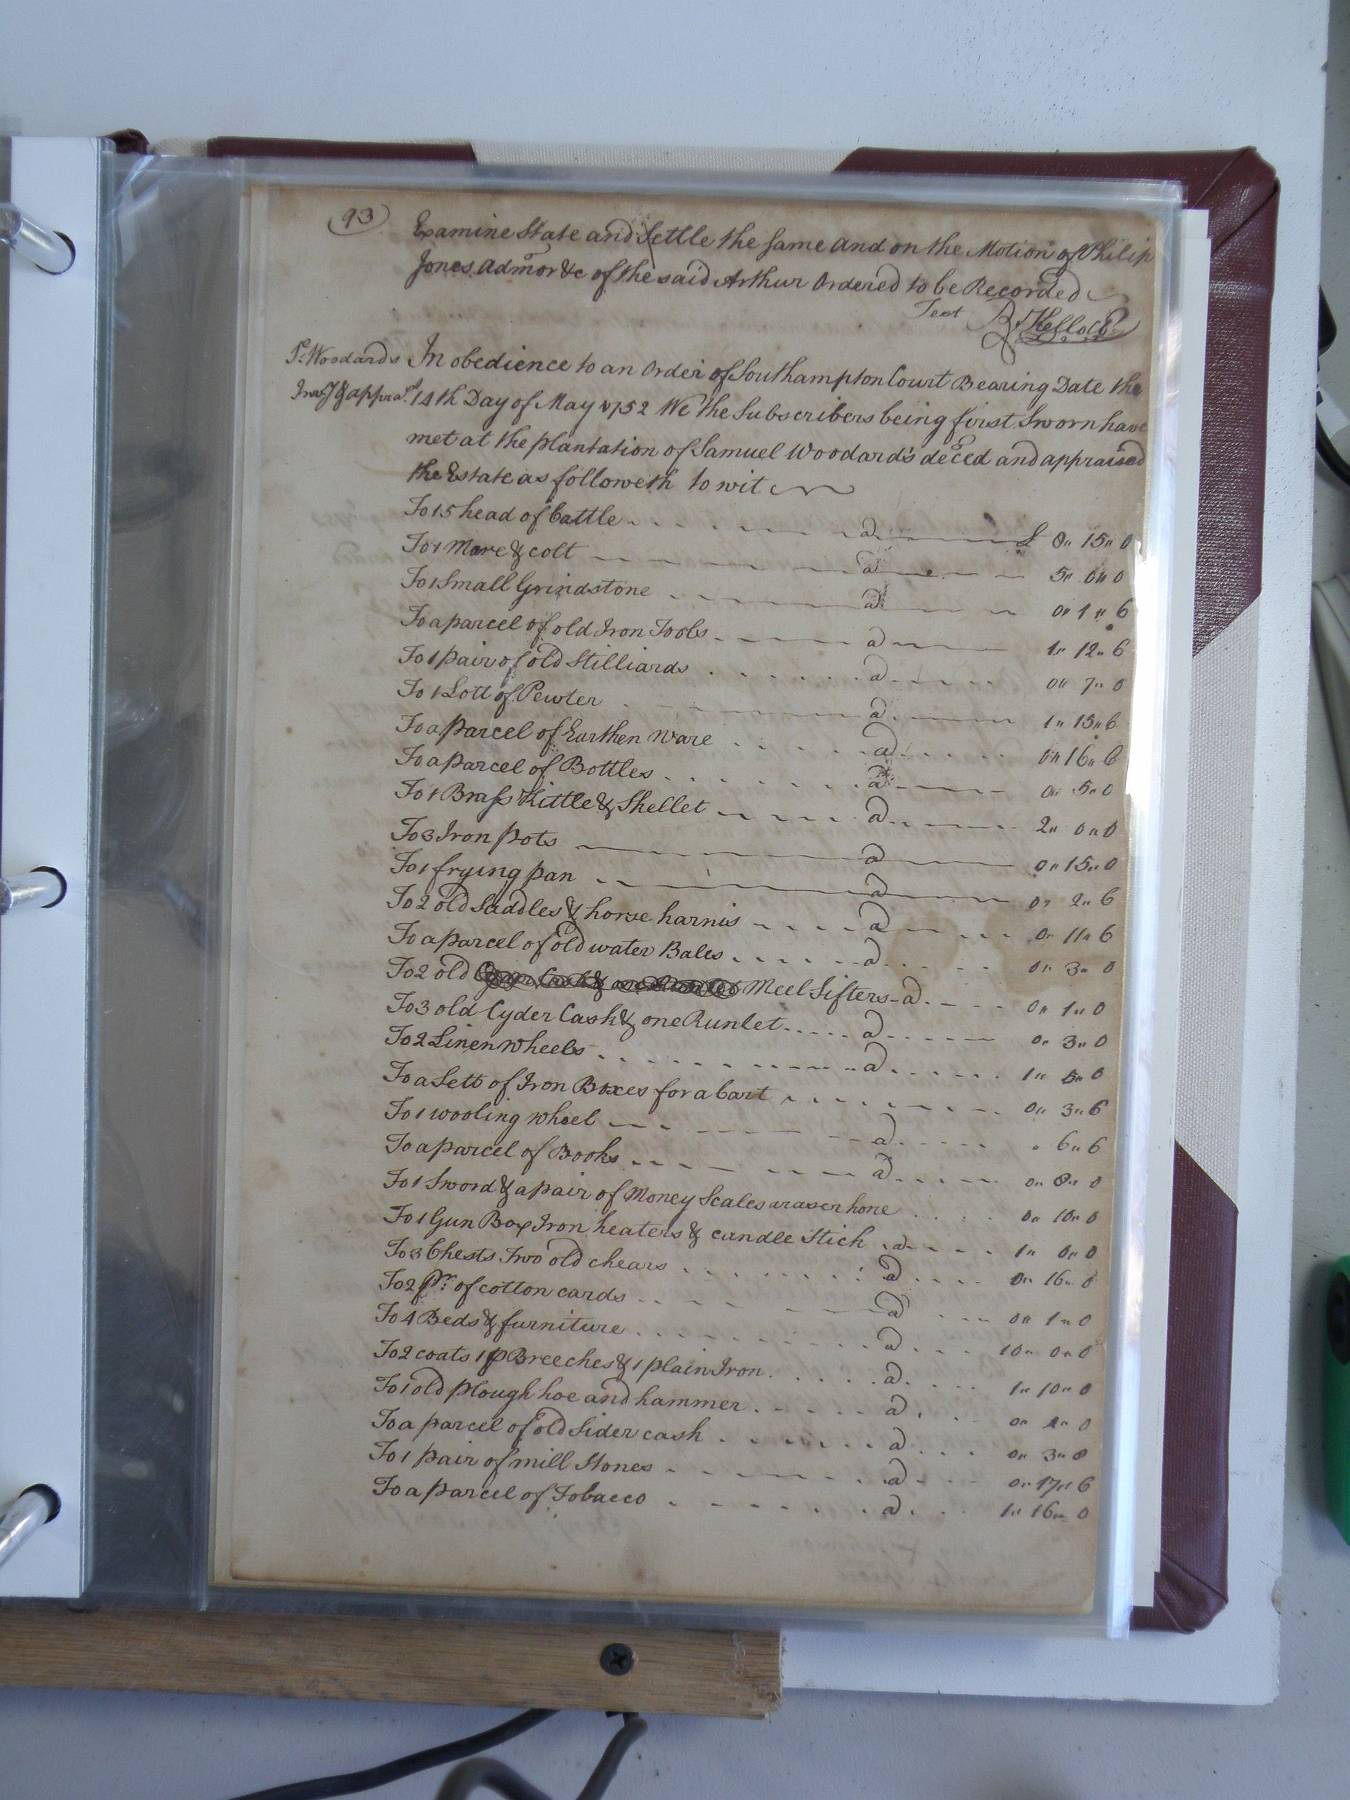 93
Examine State and Settle the same and on the Motion of Philip
Jones Admor &c of the said Arthur Ordered to be Recorded
Test R Kello CC
S. Woodards
Invy & apprat
In obedience to an Order of Southampton Court Bearing Date the
14th Day of May 1752 We the Subscribers being first Sworn have
met at the plantation of Samuel Woodard's deced and appraised
the Estate as followeth to wit
To 15 head of Cattle a £ 8" 15" 0
To 1 Mare & colt a 5" 0" 0
To 1 Small Grindstone a 0" 1" 6
To a parcel of old Iron Tools a 1" 12" 6
To 1 pair of old Stilliards a 0" 7" 0
To 1 Lott of Pewter a 1" 13" 6
To a parcel of Earthen Ware a 0" 16" 6
To a parcel of Bottles a 0" 5" 0
To 1 Brass Kittle & Skellet a 2" 0" 0
To 3 Iron pots a 0" 15" 0
To 1 frying pan a 0" 2" 6
To 2 old Saddles & horse harnis a 0" 11" 6
To a parcel of old water Bales a 0" 3" 0
To 2 old Meel Sifters a 0" 1" 0
To 3 old Cyder Cask & one Runlet a 0" 3" 0
To 2 Linen wheels a 1" 5" 0
To a Sett of Iron Boxes for a Cart 0" 3" 6
To 1 wooling wheel a " 6" 6
To a parcel of Books a 0" 8" 0
To 1 Sword & a pair of Money Scales a raser hone 0" 10" 0
To 1 Gun Box Iron heaters & candle Stick a 1" 0" 0
To 3 Chests Two old chears a 0" 16" 0
To 2 pr. of cotton cards a 0" 1" 0
To 4 Beds & furniture a 10" 0" 0
To 2 coats 1 p Breeches & 1 plain Iron a 1" 10" 0
To 1 old plough hoe and hammer a 0" 2" 0
To a parcel of old Sider cask a 0" 3" 0
To 1 pair of mill Stones a 0" 17" 6
To a parcel of Tobacco a 1" 16" 0